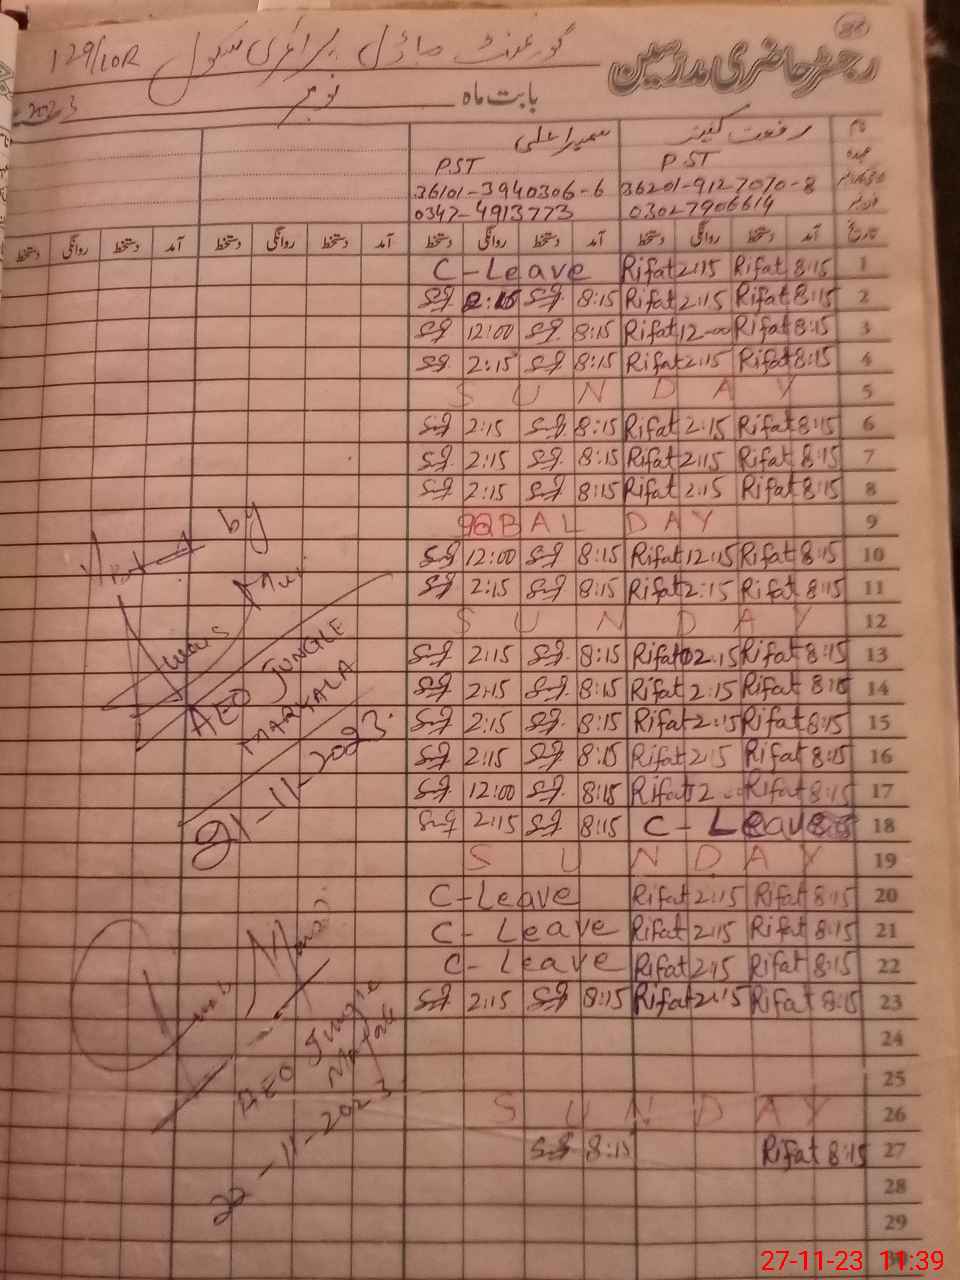 86
رجسٹر حاضری مدرسین
گورنمنٹ ماڈل پرائمری سکول 129/10R
بابت ماہ نومبر 2023
نام رفعت کینز سمیرا علی
عہدہ P.ST P.ST
36201-9127070-8 36101-3940306-6
03027906614 0347-4913773
تاریخ آمد دستخط روانگی دستخط آمد دستخط روانگی دستخط آمد دستخط روانگی دستخط آمد دستخط روانگی دستخط
C-Leave Rifat 2:15 Rifat 8:15 1
2:15 8:15 Rifat 2:15 Rifat 8:15 2
12:00 8:15 Rifat 12-00 Rifat 8:15 3
2:15 8:15 Rifat 2:15 Rifat 8:15 4
SUNDAY 5
2:15 8:15 Rifat 2:15 Rifat 8:15 6
2:15 8:15 Rifat 2:15 Rifat 8:15 7
2:15 8:15 Rifat 2:15 Rifat 8:15 8
IQBAL DAY 9
12:00 8:15 Rifat 12:15 Rifat 8:15 10
2:15 8:15 Rifat 2:15 Rifat 8:15 11
SUNDAY 12
2:15 8:15 Rifat 02:15 Rifat 8:15 13
2:15 8:15 Rifat 2:15 Rifat 8:15 14
2:15 8:15 Rifat 2:15 Rifat 8:15 15
2:15 8:15 Rifat 2:15 Rifat 8:15 16
12:00 8:15 Rifat Rifat 8:15 17
2:15 8:15 C-Leave 18
SUNDAY 19
C-Leave Rifat 2:15 Rifat 8:15 20
C-Leave Rifat 2:15 Rifat 8:15 21
C-Leave Rifat 2:15 Rifat 8:15 22
2:15 8:15 Rifat 2:15 Rifat 8:15 23
24
25
SUNDAY 26
8:15 Rifat 8:15 27
28
29
30
by
AEO JUNGLE
MARYALA
21-11-2023
AEO Jungle
22-11-2023
27-11-23 11:39